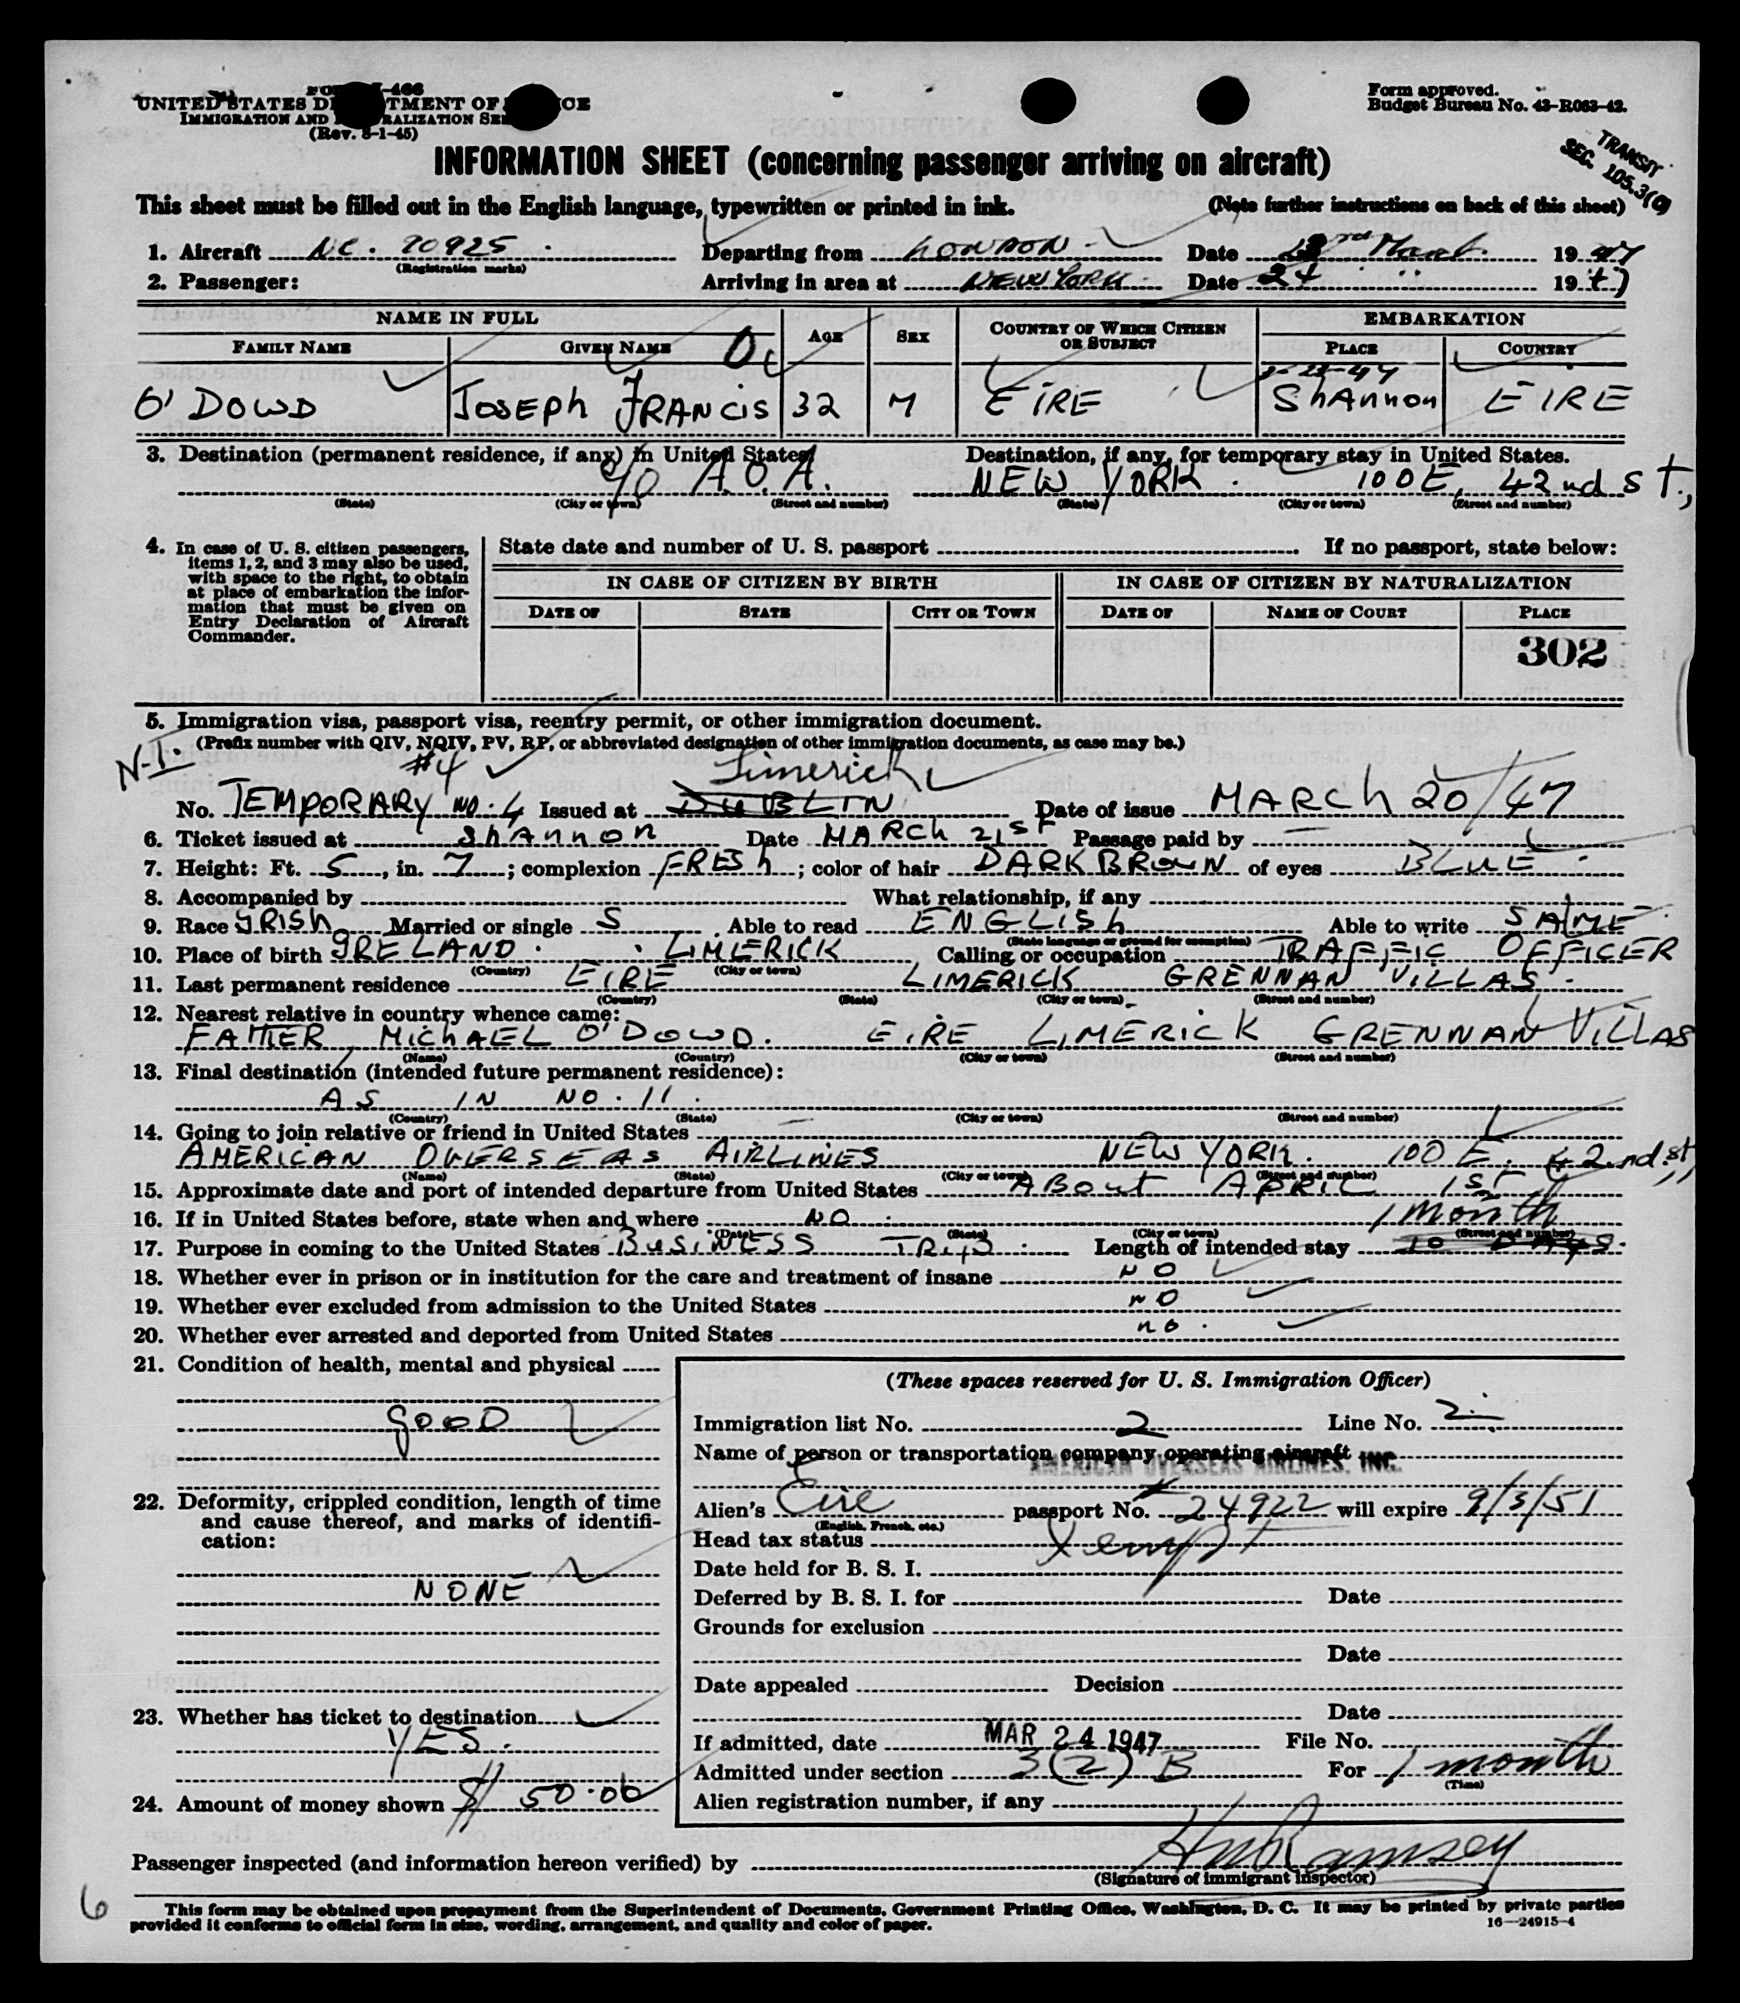 UNITED STATES
IMMIGRATION AND
(Rev. 8-1-45)
Form approved.
Budget Bureau No. 43-R063-42.
TRANSIT
SEC. 105.3(
INFORMATION SHEET (concerning passenger arriving on aircraft)
This sheet must be filled out in the English language, typewritten or printed in ink. (Note further instructions on back of this sheet)
1. Aircraft NC. 90925. Departing from LONDON. Date 19 47
(Registration marks)
2. Passenger: Arriving in area at NEW YORK. Date 24 " " 19 47
NAME IN FULL AGE SEX COUNTRY OF WHICH CITIZEN OR SUBJECT EMBARKATION
FAMILY NAME GIVEN NAME PLACE COUNTRY
O'DOWD JOSEPH FRANCIS 32 M EIRE ShAnnon EIRE
3. Destination (permanent residence, if any) in United States Destination, if any, for temporary stay in United States.
c/o A.O.A. NEW YORK. 100 E. 42nd ST.,
(State) (City or town) (Street and number) (State) (City or town) (Street and number)
4. In case of U. S. citizen passengers, items 1, 2, and 3 may also be used, with space to the right, to obtain at place of embarkation the information that must be given on Entry Declaration of Aircraft Commander.
State date and number of U. S. passport If no passport, state below:
IN CASE OF CITIZEN BY BIRTH IN CASE OF CITIZEN BY NATURALIZATION
DATE OF STATE CITY OR TOWN DATE OF NAME OF COURT PLACE
302
5. Immigration visa, passport visa, reentry permit, or other immigration document.
(Prefix number with QIV, NQIV, PV, RP, or abbreviated designation of other immigration documents, as case may be.)
N-I. #4 Limerick
No. TEMPORARY NO. 4 Issued at DUBLIN Date of issue MARCh 20/47
6. Ticket issued at ShAnnon Date MARCh 21ST Passage paid by —
7. Height: Ft. 5, in. 7; complexion FRESh; color of hair DARK BROWN of eyes BLUE.
8. Accompanied by What relationship, if any
9. Race IRISh Married or single S Able to read ENGLISh Able to write SAME
(State language or ground for exemption)
10. Place of birth IRELAND. LIMERICK Calling or occupation TRAFFIC OFFICER
(Country) (City or town)
11. Last permanent residence EIRE LIMERICK GRENNAN VILLAS.
(Country) (State) (City or town) (Street and number)
12. Nearest relative in country whence came:
FATHER, MIChAEL O'DOWD. EIRE LIMERICK GRENNAN VILLAS
(Name) (Country) (City or town) (Street and number)
13. Final destination (intended future permanent residence):
AS IN NO. 11.
(Country) (State) (City or town) (Street and number)
14. Going to join relative or friend in United States —
AMERICAN OVERSEAS AIRLINES NEW YORK. 100 E. 42nd st,
(Name) (State) (City or town) (Street and number)
15. Approximate date and port of intended departure from United States ABOUT APRIL 1ST
16. If in United States before, state when and where NO. 1 month
(Date) (State) (City or town) (Street and number)
17. Purpose in coming to the United States BUSINESS TRIP. Length of intended stay 10 DAYS.
18. Whether ever in prison or in institution for the care and treatment of insane NO
19. Whether ever excluded from admission to the United States NO
20. Whether ever arrested and deported from United States no.
21. Condition of health, mental and physical
gooD
22. Deformity, crippled condition, length of time and cause thereof, and marks of identification:
NONE
23. Whether has ticket to destination
YES.
24. Amount of money shown $ 50.00
(These spaces reserved for U. S. Immigration Officer)
Immigration list No. 2 Line No. 2.
Name of person or transportation company operating aircraft
AMERICAN OVERSEAS AIRLINES, INC.
Alien's Eire passport No. 24922 will expire 9/3/51
(English, French, etc.)
Head tax status Xempt
Date held for B. S. I.
Deferred by B. S. I. for Date
Grounds for exclusion
Date
Date appealed Decision
Date
If admitted, date MAR 24 1947 File No.
Admitted under section 3(2) B For 1 month
(Time)
Alien registration number, if any
Passenger inspected (and information hereon verified) by Ramsey
(Signature of immigrant inspector)
6
This form may be obtained upon prepayment from the Superintendent of Documents, Government Printing Office, Washington, D. C. It may be printed by private parties
provided it conforms to official form in size, wording, arrangement, and quality and color of paper. 16—24915-4